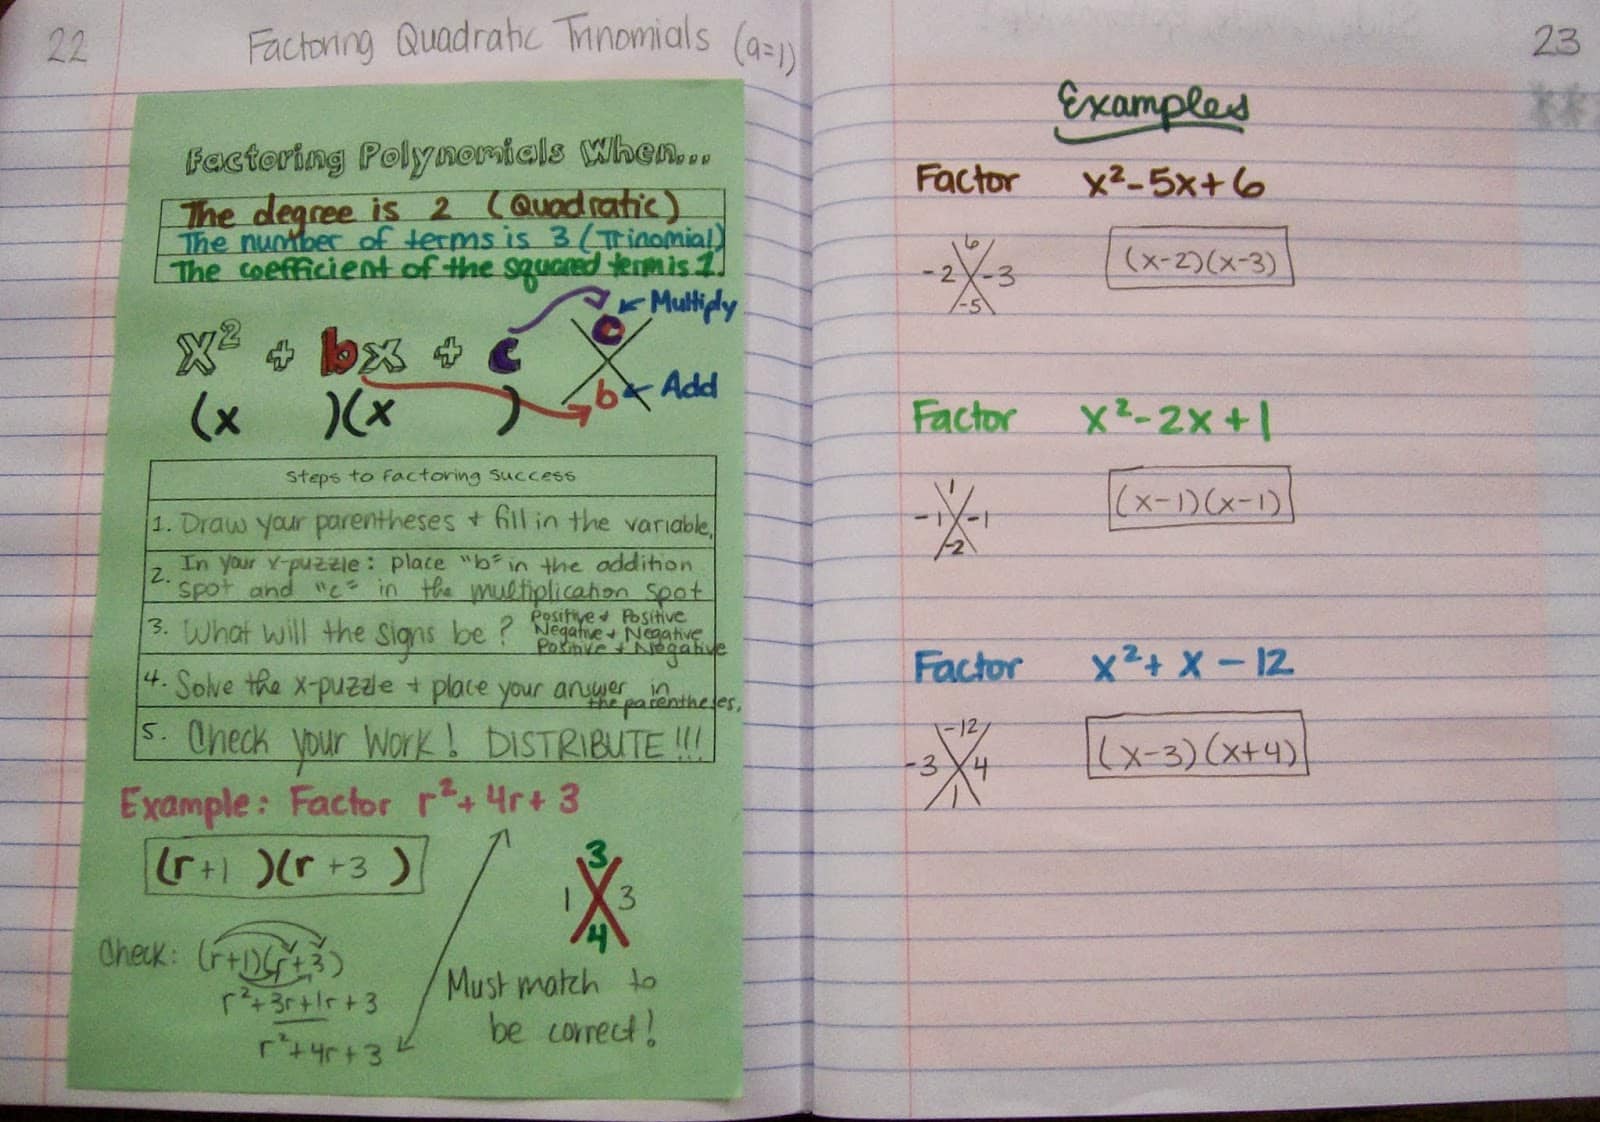 22
Factoring Quadratic Trinomials (a=1)
Factoring Polynomials When...
The degree is 2 (Quadratic)
The number of terms is 3 (Trinomial)
The coefficient of the squared term is 1.
x² + bx + c
c ← Multiply
b ← Add
(x )(x )
Steps to Factoring Success
1. Draw your parentheses + fill in the variable.
2. In your x-puzzle: place "b" in the addition
spot and "c" in the multiplication spot
3. What will the signs be? Positive + Positive
Negative + Negative
Positive + Negative
4. Solve the x-puzzle + place your answer in
the parentheses.
5. Check your work! DISTRIBUTE!!!
Example: Factor r²+4r+3
(r+1)(r+3)
3
1 3
4
Check: (r+1)(r+3)
r²+3r+1r+3
r²+4r+3
Must match to
be correct!
23
Examples
Factor x²-5x+6
6
-2 -3
-5
(x-2)(x-3)
Factor x²-2x+1
1
-1 -1
-2
(x-1)(x-1)
Factor x²+x-12
-12
-3 4
1
(x-3)(x+4)